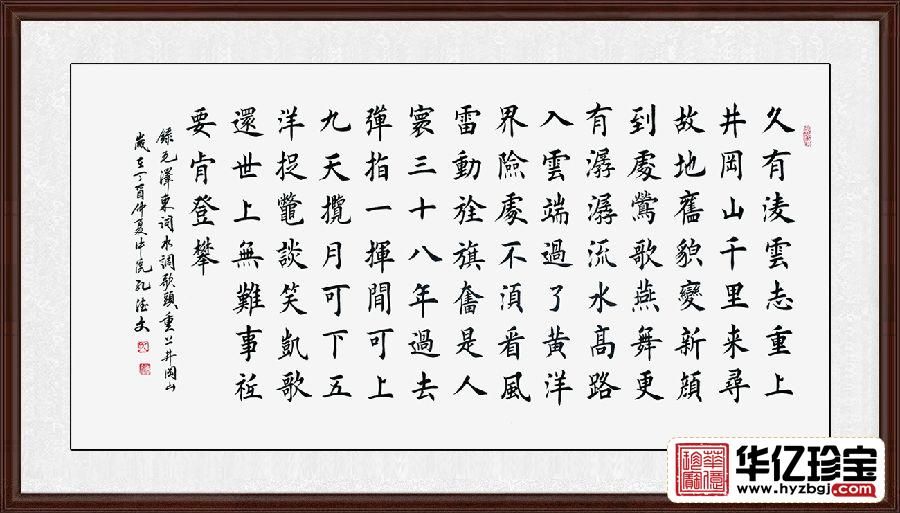 久有淩雲志重上
井岡山千里来尋
故地舊貌變新顔
到處鶯歌燕舞更
有潺潺流水高路
入雲端過了黄洋
界險處不須看風
雷動旌旗奮是人
寰三十八年過去
彈指一揮間可上
九天攬月可下五
洋捉鼈談笑凱歌
還世上無難事衹
要肯登攀
録毛澤東詞水調歌頭重上井岡山
歲在丁酉仲夏中院孔德
華億珍寶
华亿珍宝
www.hyzbgj.com